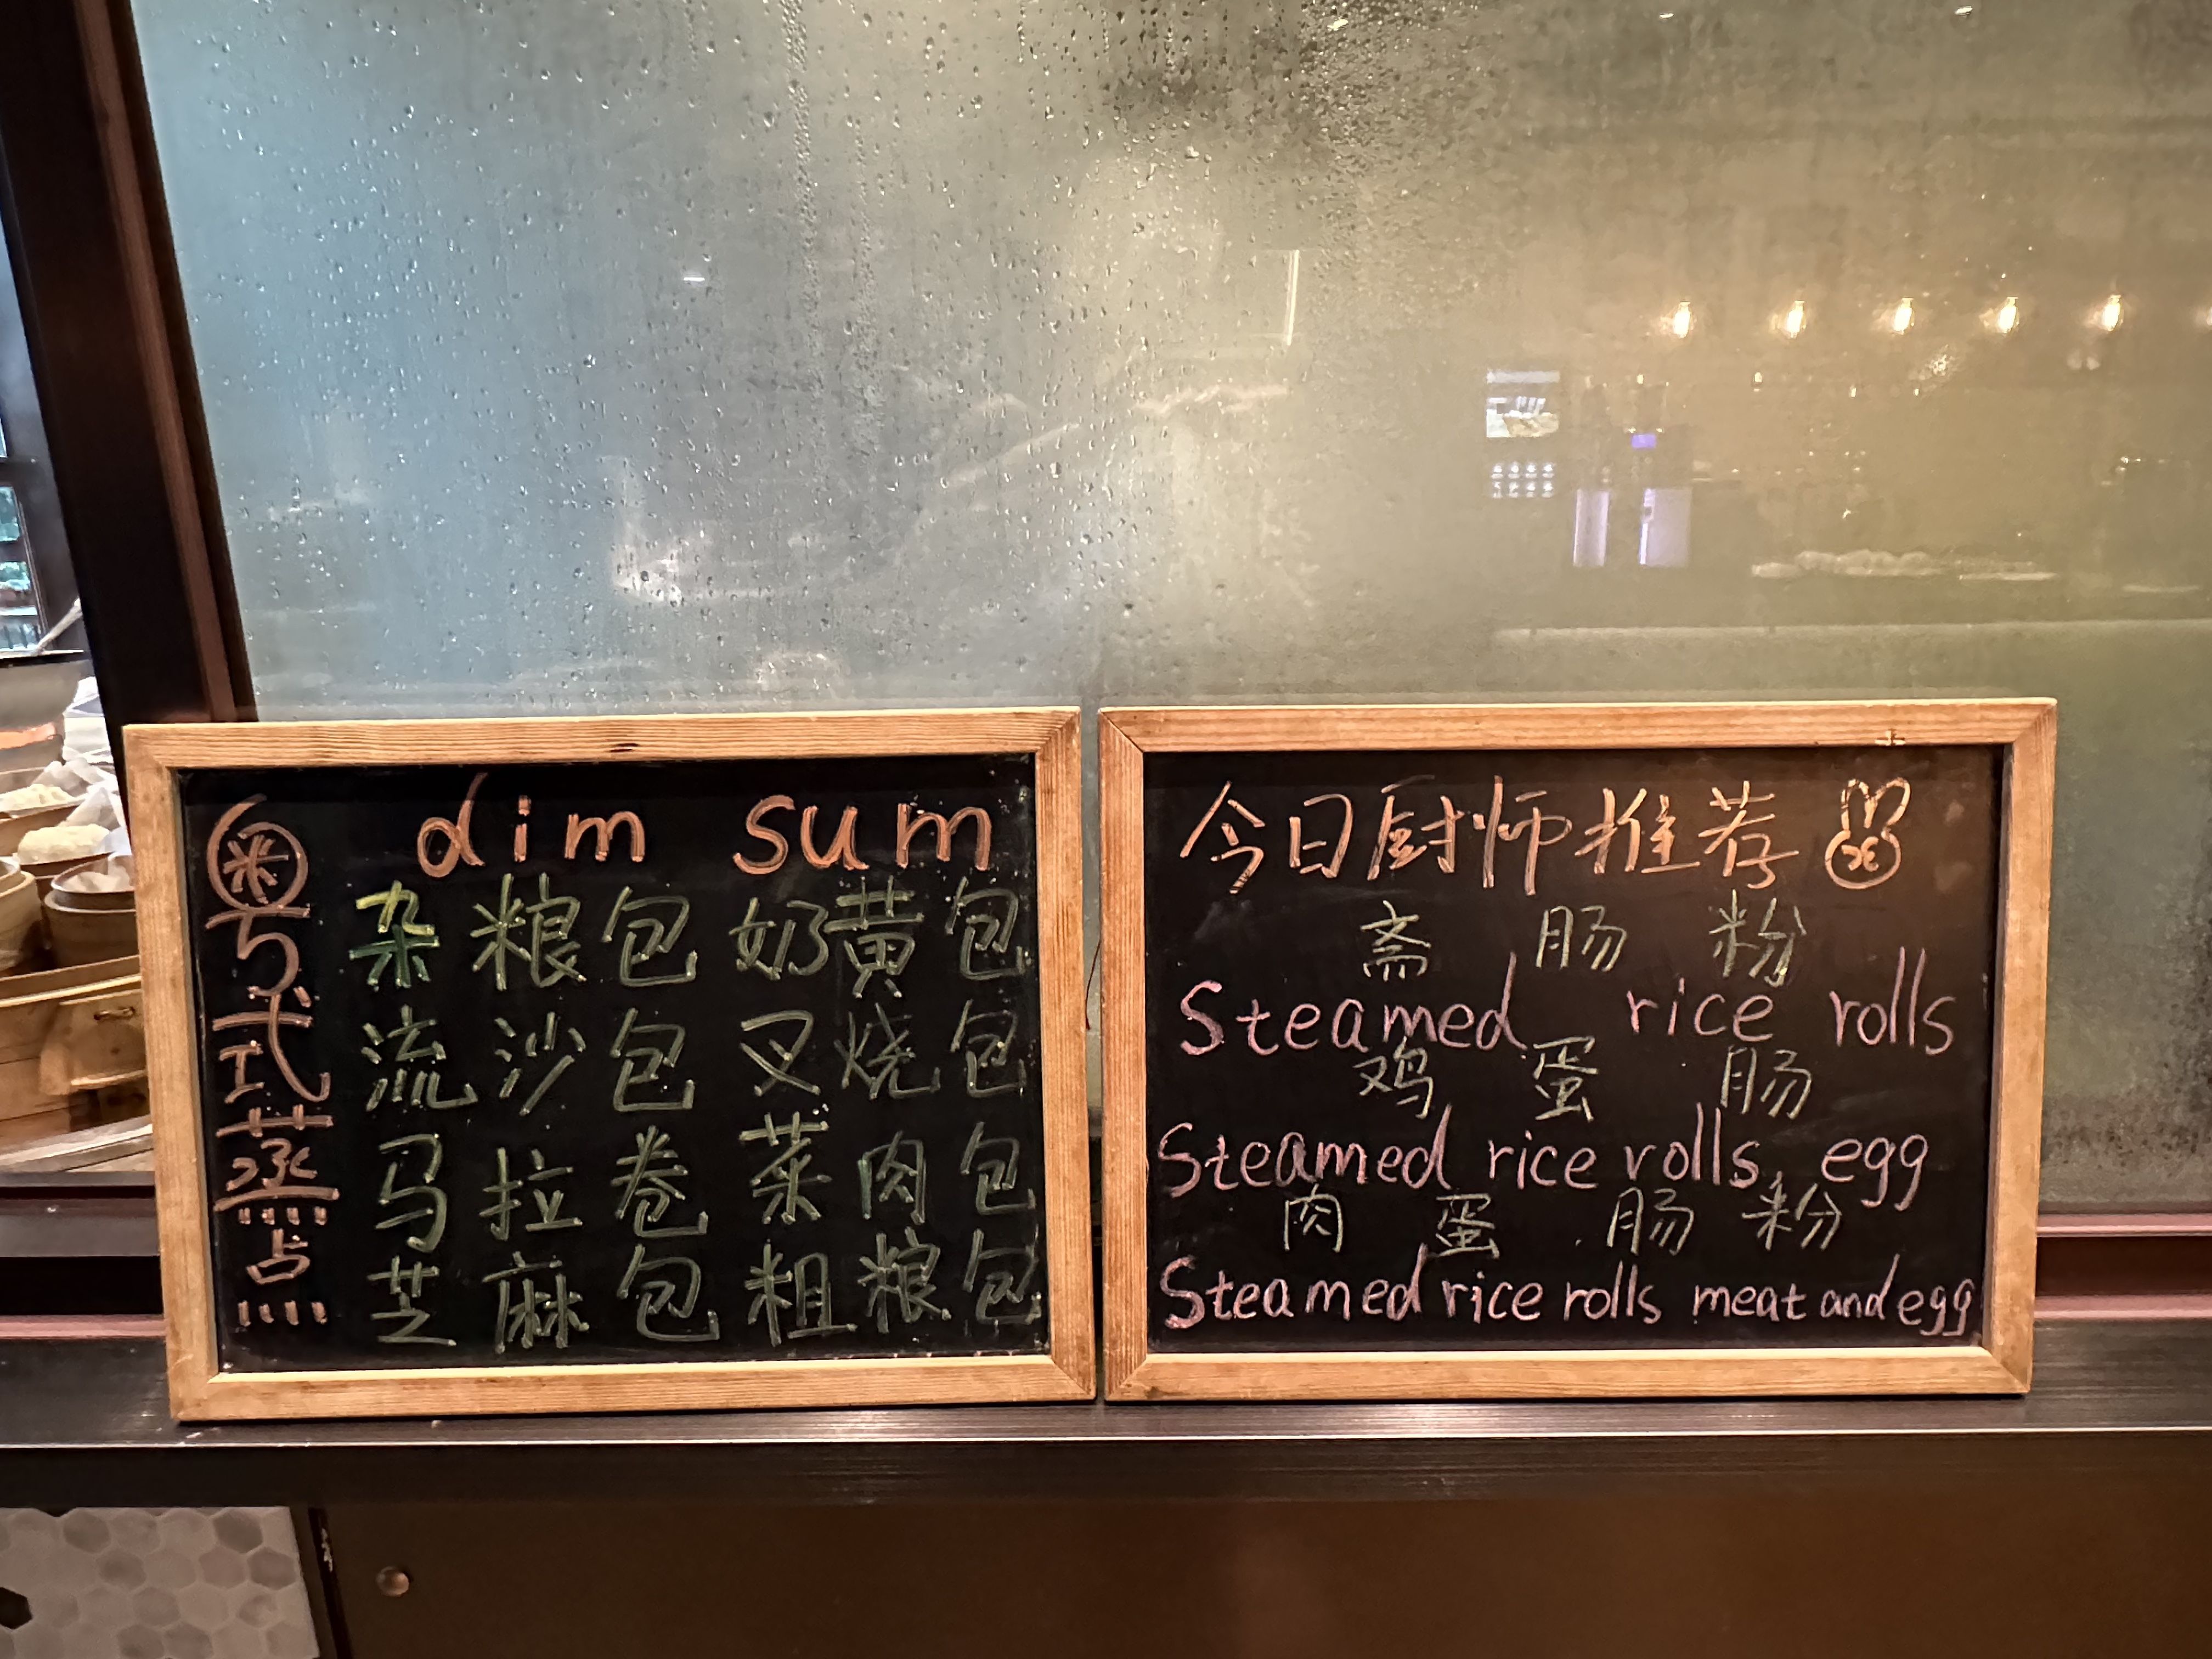 粤式蒸点
dim sum
杂粮包 奶黄包
流沙包 叉烧包
马拉卷 菜肉包
芝麻包 粗粮包
今日厨师推荐
斋肠粉
Steamed rice rolls
鸡蛋肠
Steamed rice rolls, egg
肉蛋肠粉
Steamed rice rolls meat and egg